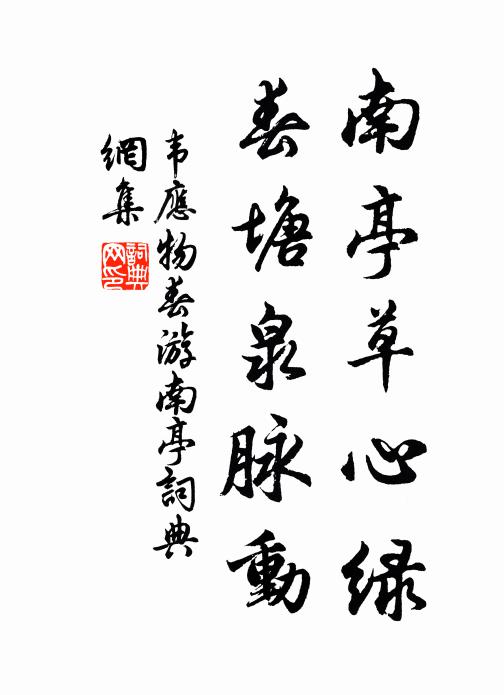 南亭草心绿
春塘泉脉動
韦應物春游南亭詞典
網集
詞典网印